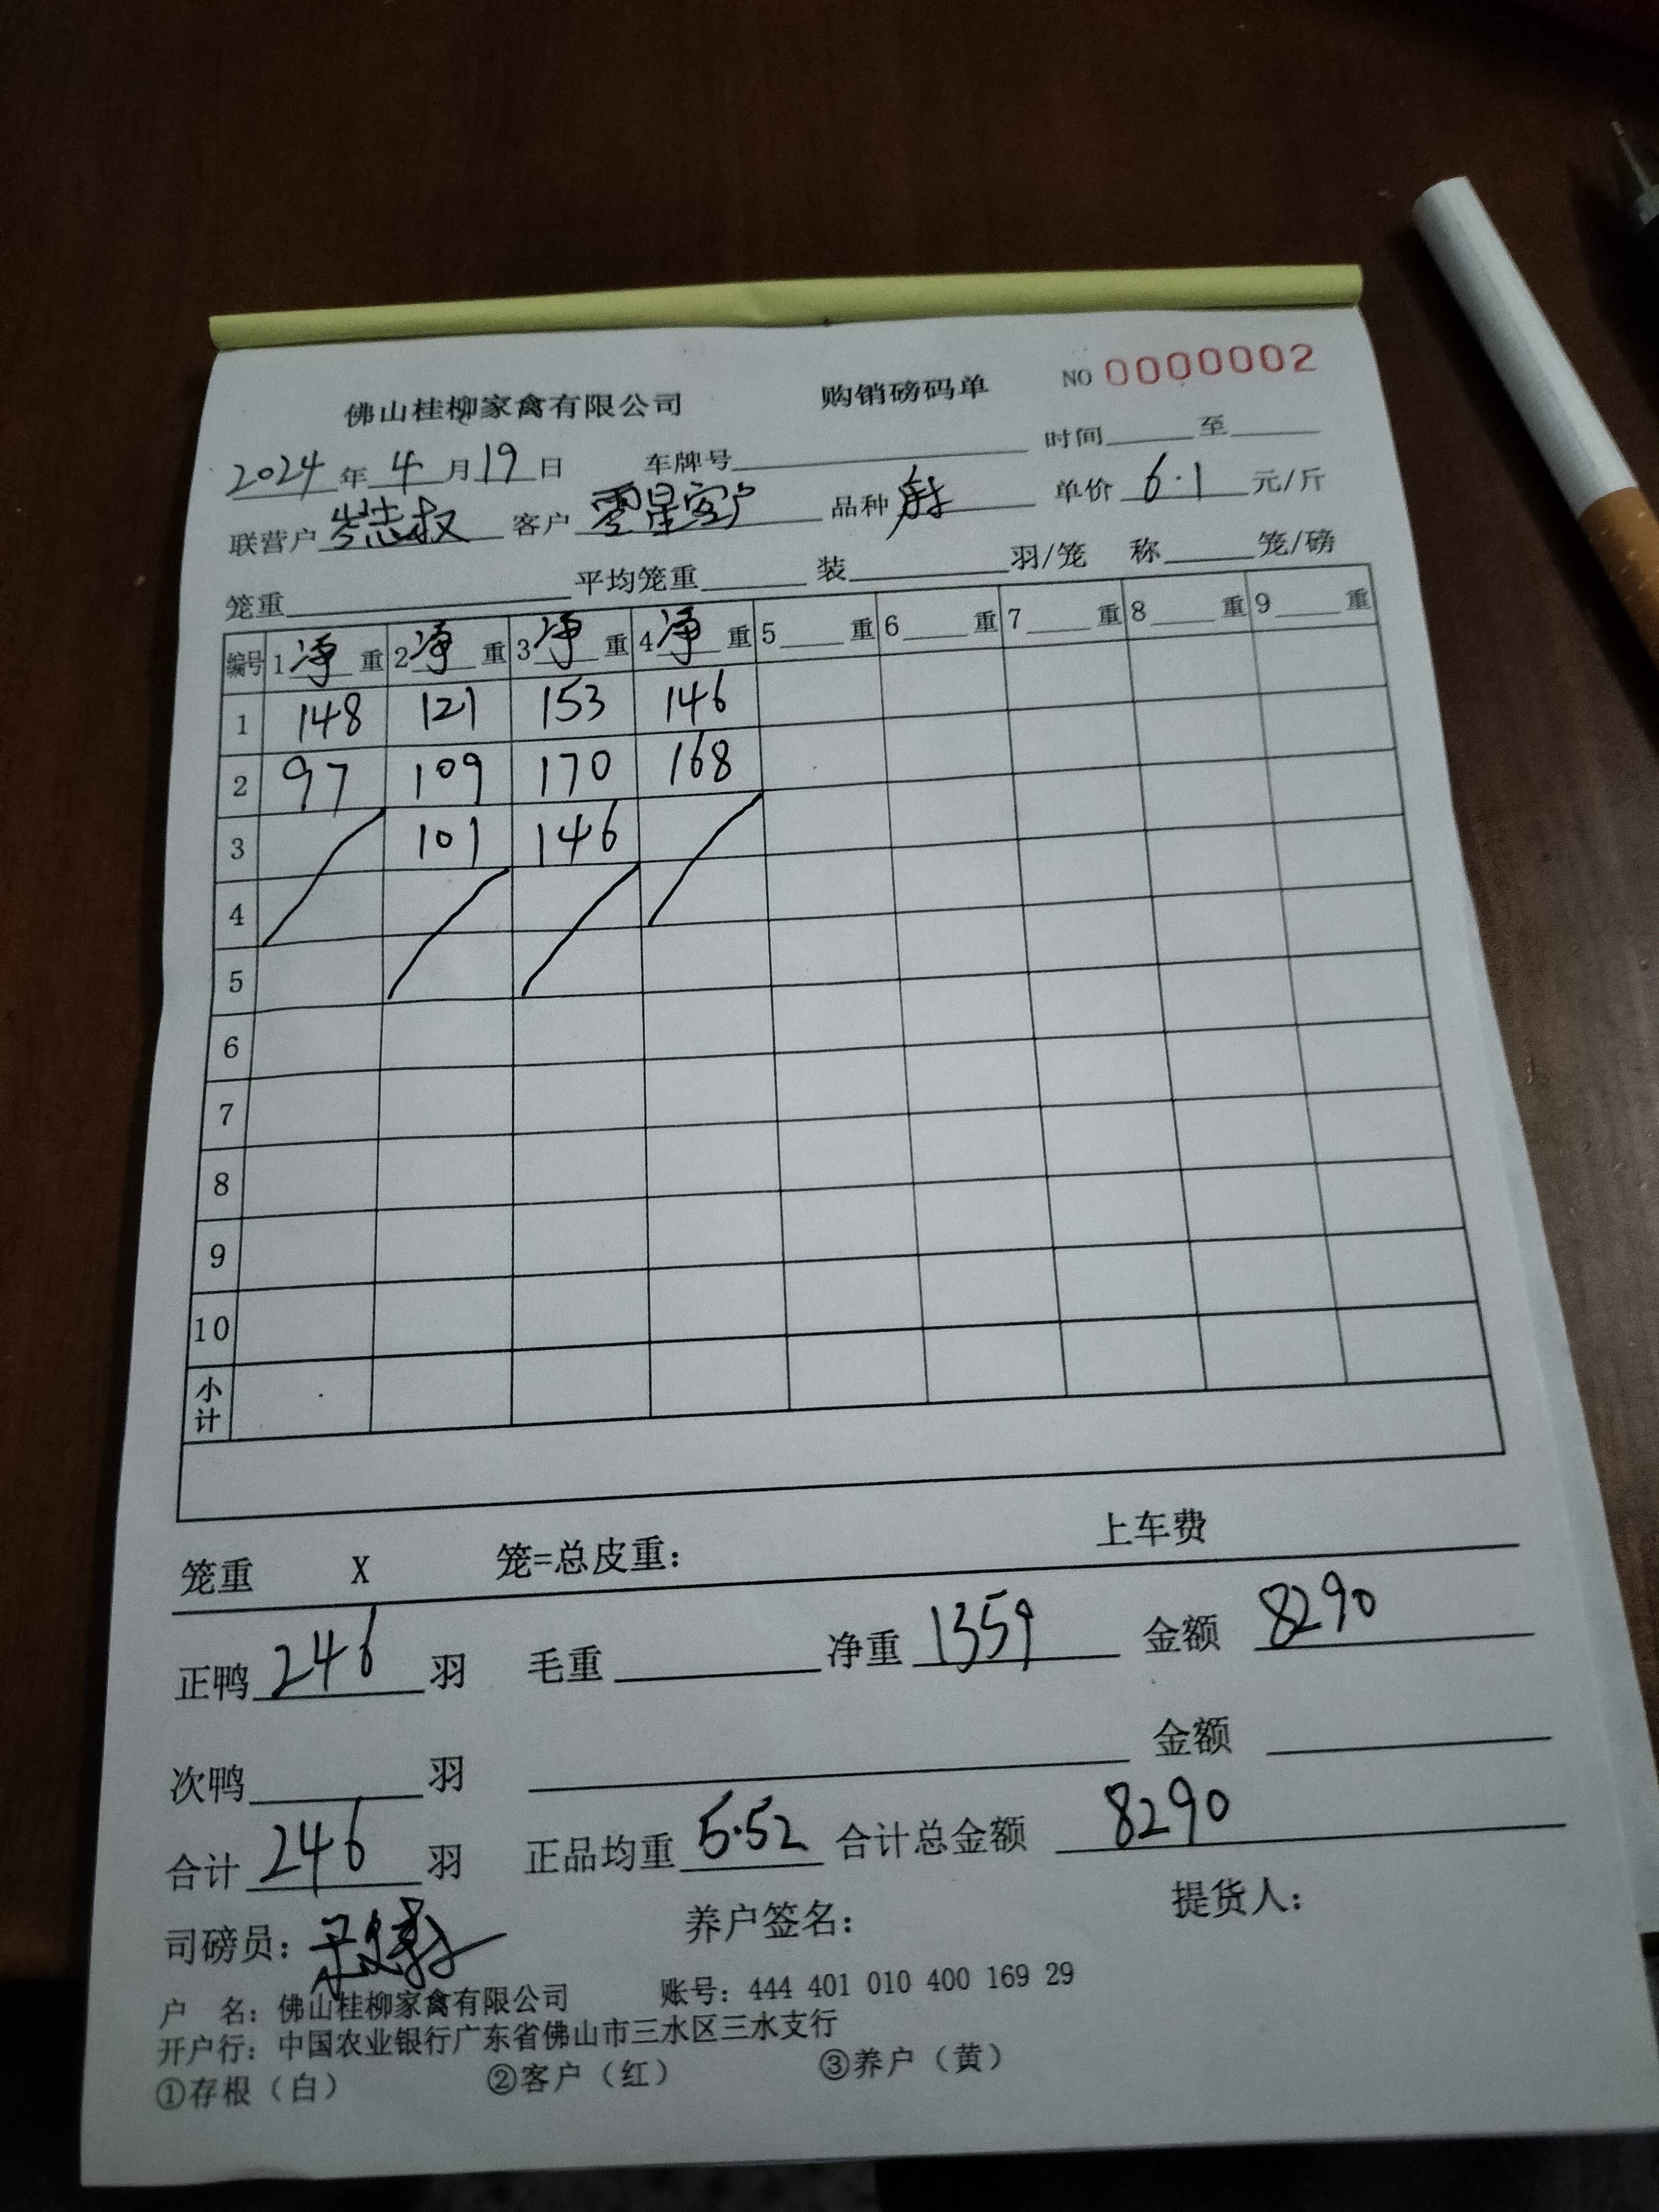 佛山桂柳家禽有限公司 购销磅码单 NO 0000002
2024年4月19日 车牌号 时间 至
联营户 岑志权 客户 零星客户 品种 单价 6.1 元/斤
笼重 平均笼重 装 羽/笼 称 笼/磅
编号 1净重 2净重 3净重 4净重 5 重 6 重 7 重 8 重 9 重
1 148 121 153 146
2 97 109 170 168
3 101 146
4
5
6
7
8
9
10
小计
笼重 X 笼=总皮重: 上车费
正鸭 246 羽 毛重 净重 1359 金额 8290
次鸭 羽 金额
合计 246 羽 正品均重 5.52 合计总金额 8290
司磅员: 养户签名: 提货人:
户 名: 佛山桂柳家禽有限公司 账号: 444 401 010 400 169 29
开户行: 中国农业银行广东省佛山市三水区三水支行
①存根（白） ②客户（红） ③养户（黄）